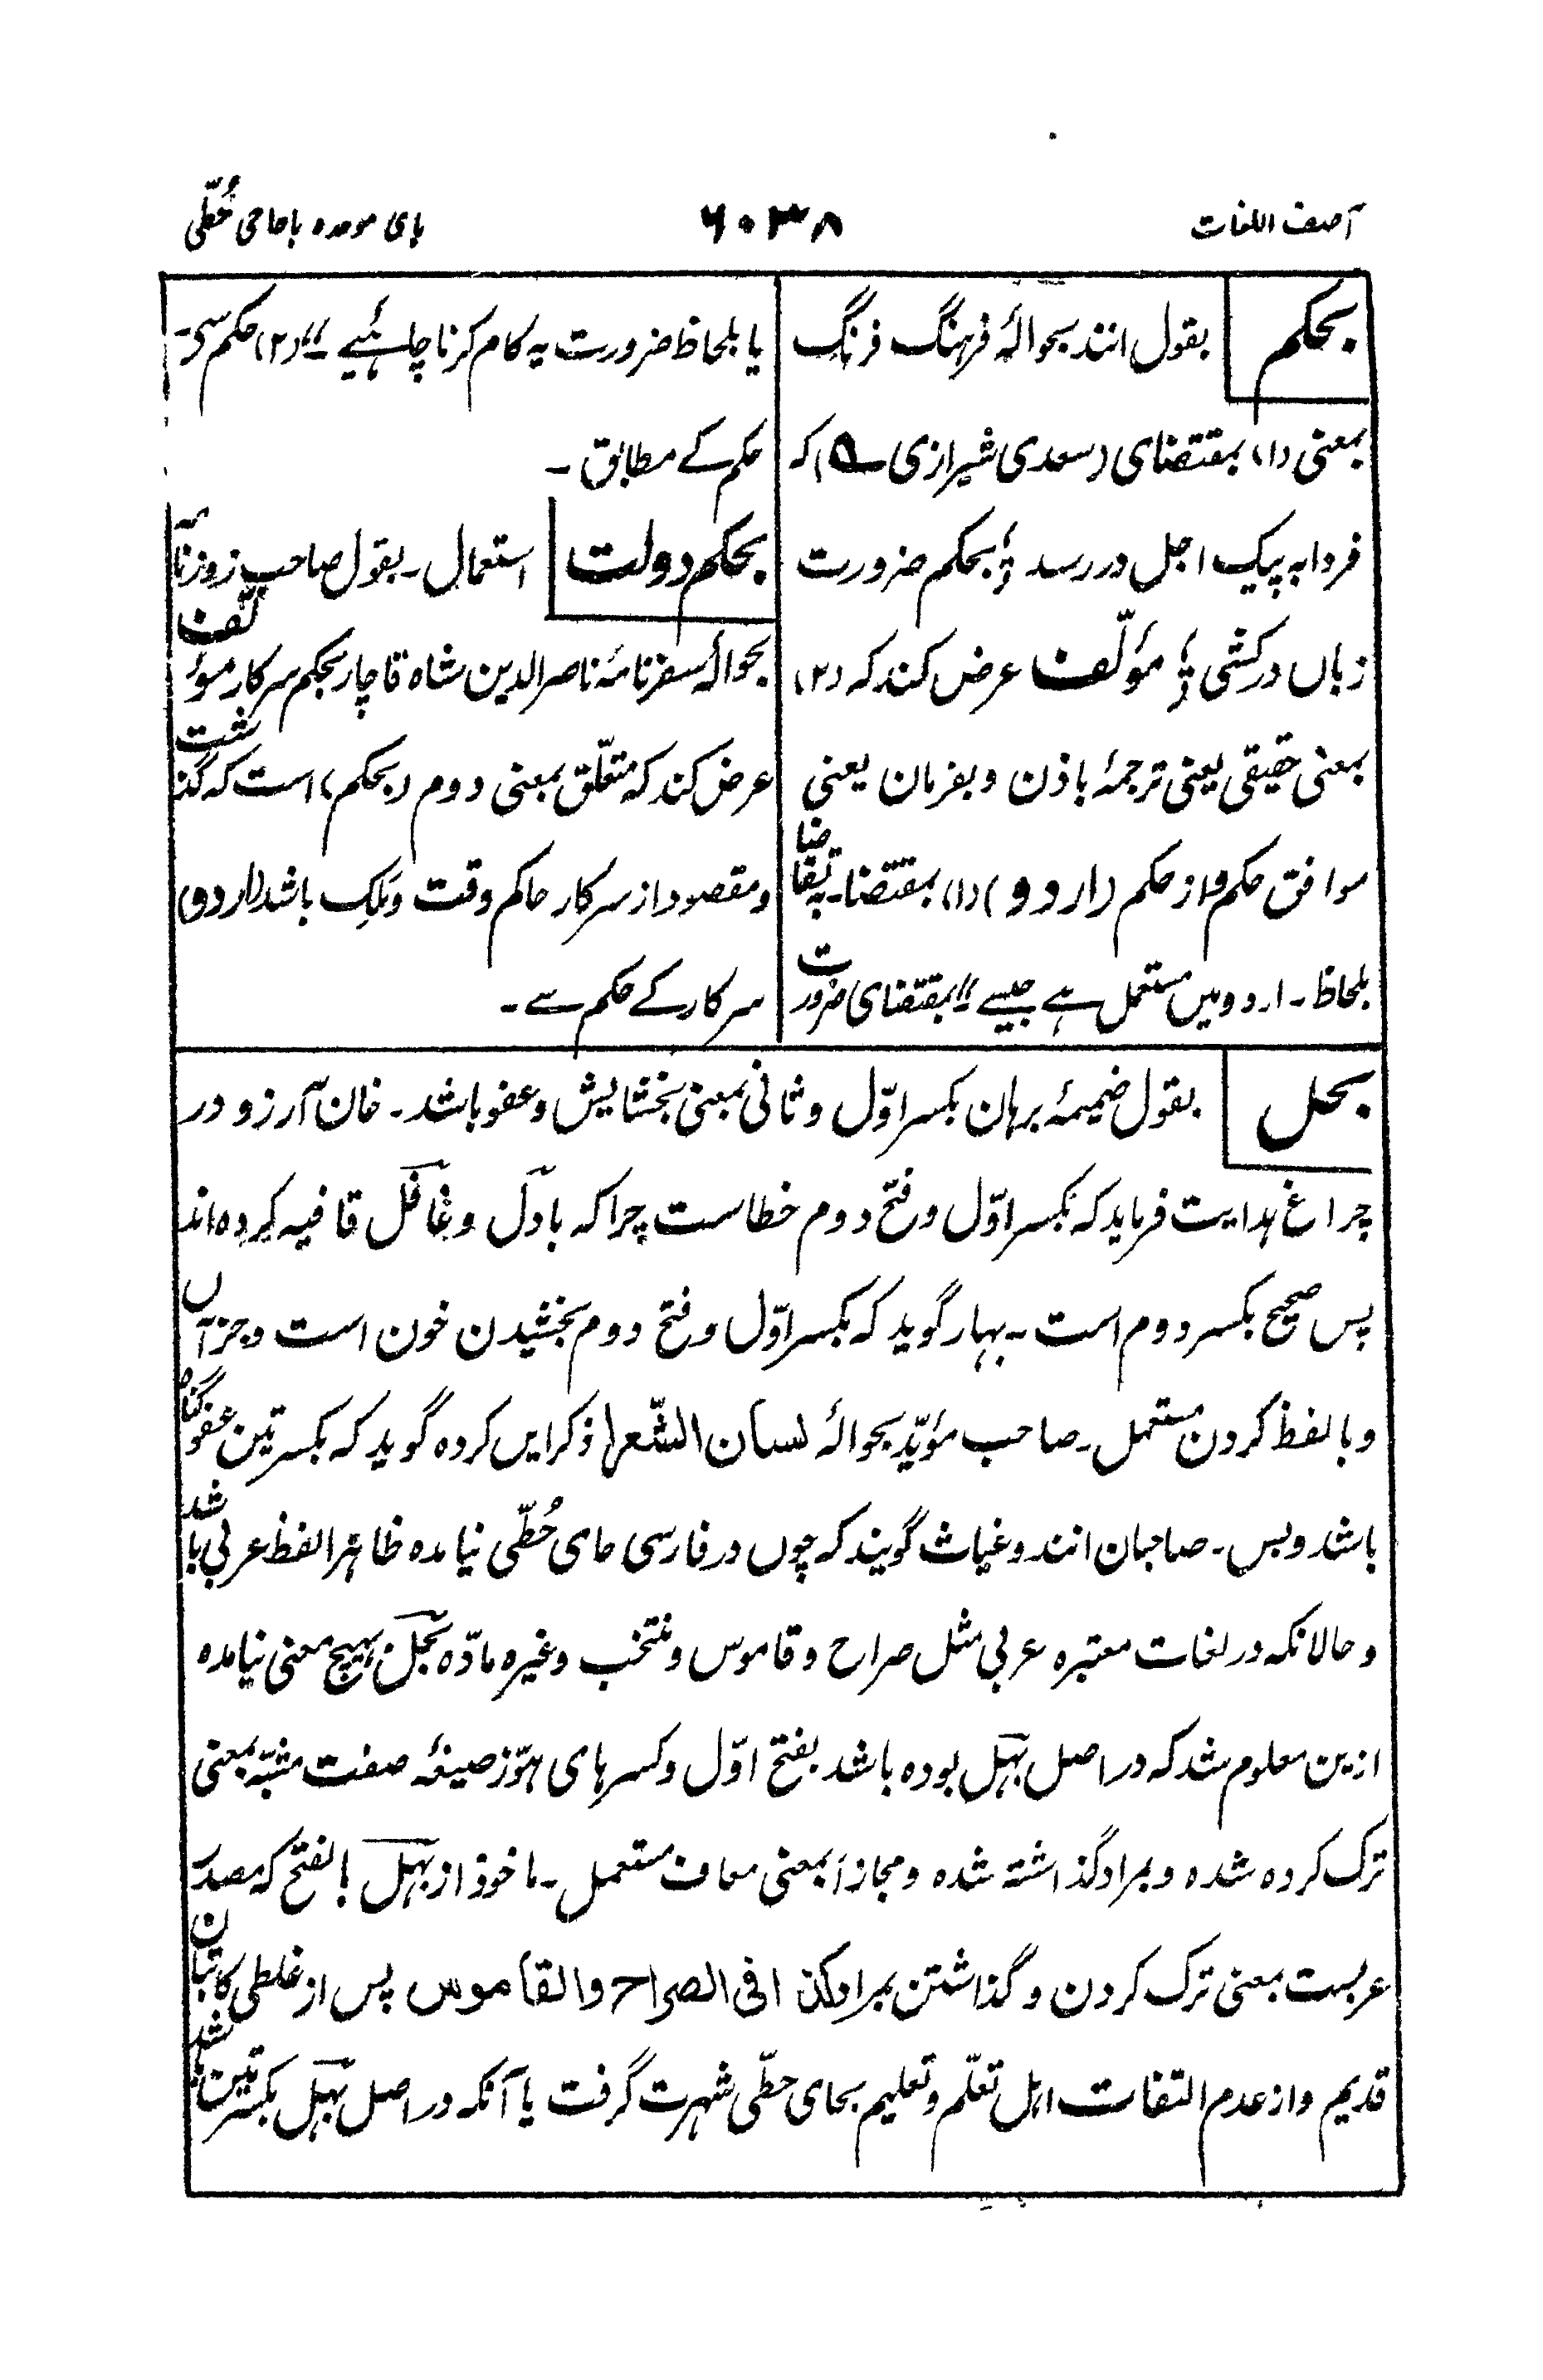 آصف اللغات
۶۰۳۸
بای موحده باحای حُطّی
بحکم
بقول انند بحوالۂ فرہنگ فرنگ
بمعنی (۱) بمقتضای (سعدی شیرازی ؎) که
فردا په پیک اجل در رسد ؛ بحکم ضرورت
زباں در کشی ؛ مؤلّف عرض کند که (۲)
بمعنی حقیقی یعنی ترجمۂ باذن و بفرمان یعنی
موافق حکم و از حکم (اردو) (۱) بمقتضا۔ بتقاضا
بلحاظ۔ اردو میں مستعمل ہے جیسے "بمقتضای ضرورت
یا بلحاظ ضرورت یہ کام کرنا چاہئیے"۔ (۲) حکم سی۔
حکم کے مطابق۔
بحکم دولت
استعمال۔ بقول صاحب روزنامہ
بحوالۂ سفرنامۂ ناصرالدین شاه قاچار بحکم سرکار مؤلّف
عرض کند که متعلّق بمعنی دوم (بحکم) است که گذشت
و مقصود از سرکار حاکم وقت و مَلِک باشد (اردو)
سرکار کے حکم سے۔
بحل
بقول ضمیمۂ برہان بکسر اوّل و ثانی بمعنی بخشایش و عفو باشد۔ خان آرزو در
چراغ ہدایت فرماید که بکسر اوّل و فتح دوم خطاست چرا که با دل و غافل قافیه کرده اند
پس صحیح بکسر دوم است۔ بہار گوید که بکسر اوّل و فتح دوم بخشیدن خون است و جز آں
و با لفظ کردن مستعمل۔ صاحب مؤیّد بحوالۂ لسان الشّعرا ذکر ایں کرده گوید که بکسرتین عفو گناه
باشد و بس۔ صاحبان انند و غیاث گویند که چوں در فارسی حای حُطّی نیامده ظاہرا لفظ عربی باشد
و حالانکه در لغات معتبره عربی مثل صراح و قاموس و منتخب وغیره مادّه بحل بہیچ معنی نیامده
ازین معلوم شد که در اصل بہل بوده باشد بفتح اوّل و کسر ہای ہوّز صیغۂ صفت مشبّه بمعنی
ترک کرده شده و بمراد گذاشته شده و مجازاً بمعنی معاف مستعمل۔ ماخوذ از بہل بالفتح که مصدر
عربست بمعنی ترک کردن و گذاشتن بمراد کذا فی الصراح و القاموس پس از غلطی کاتبان
قدیم و از عدم التفات اہل تعلّم و تعلیم بحای حطّی شہرت گرفت یا آنکه در اصل بہل بکسرتین باشد